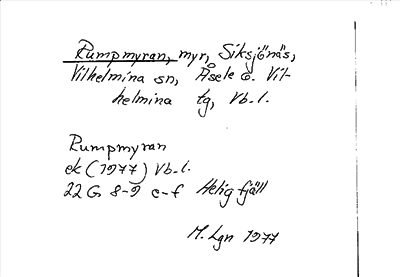 Rumpmyran, myr, Siksjönäs,
Vilhelmina sn, Åsele o. Vil-
helmina tg, Vb. l.
Rumpmyran
ek (1977) Vb. l.
22 G 8-9 c-f Helig fjäll
M. Lgn 1977